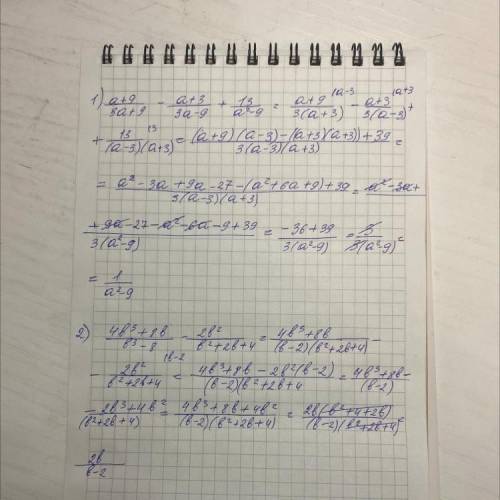 1) (a+9)/(3a+9) - (a+3)/(3a-9) + 13/(a²-9) = (a+9)/(3(a+3)) |a-3 - (a+3)/(3(a-3)) |a+3 +
+ 13/((a-3)(a+3)) |3 = ((a+9)(a-3)-(a+3)(a+3)+39)/(3(a-3)(a+3)) =
= (a²-3a+9a-27-(a²+6a+9)+39)/(3(a-3)(a+3)) = a²-3a+
+9a-27-a²-6a-9+39/(3(a²-9)) = (-36+39)/(3(a²-9)) = 3/(3(a²-9)) =
= 1/(a²-9)
2) (4b³+8b)/(b³-8) - 2b²/(b²+2b+4) = (4b³+8b)/((b-2)(b²+2b+4)) -
- 2b²/(b²+2b+4) |b-2 = (4b³+8b-2b²(b-2))/((b-2)(b²+2b+4) = 4b³+8b-/(b-2)
-2b³+4b²/(b²+2b+4) = (4b³+8b+4b²)/((b-2)(b²+2b+4)) = 2b(b²+4+2b)/((b-2)(b²+2b+4)) =
2b/(b-2)